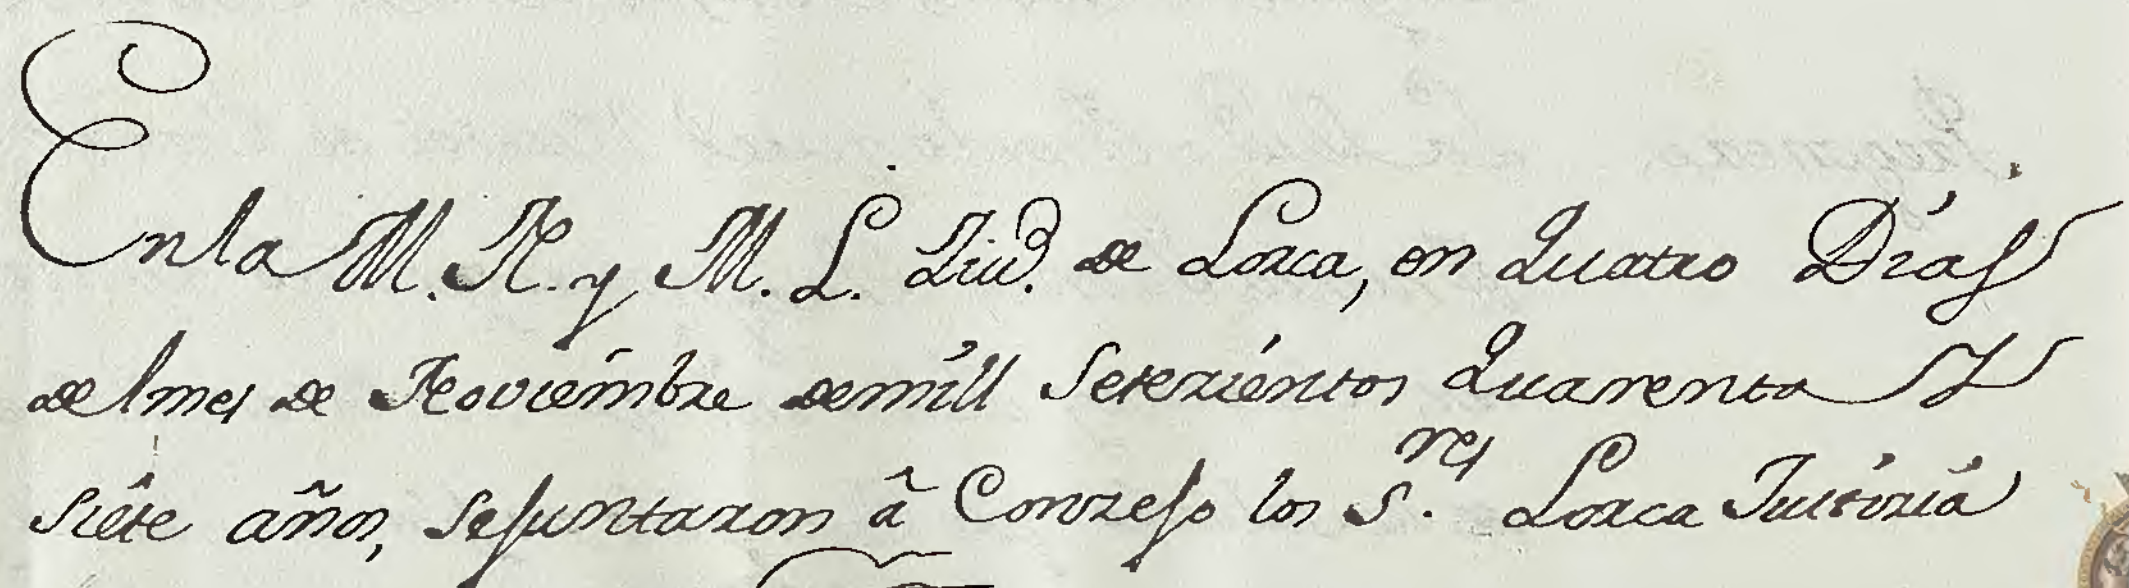 En la M. N. y M. L. Ziud. de Lorca, en quatro Dias
del mes de Noviembre de mill setezientos quarenta y
siete años, se juntaron â Conzejo los S.res Lorca Justizia